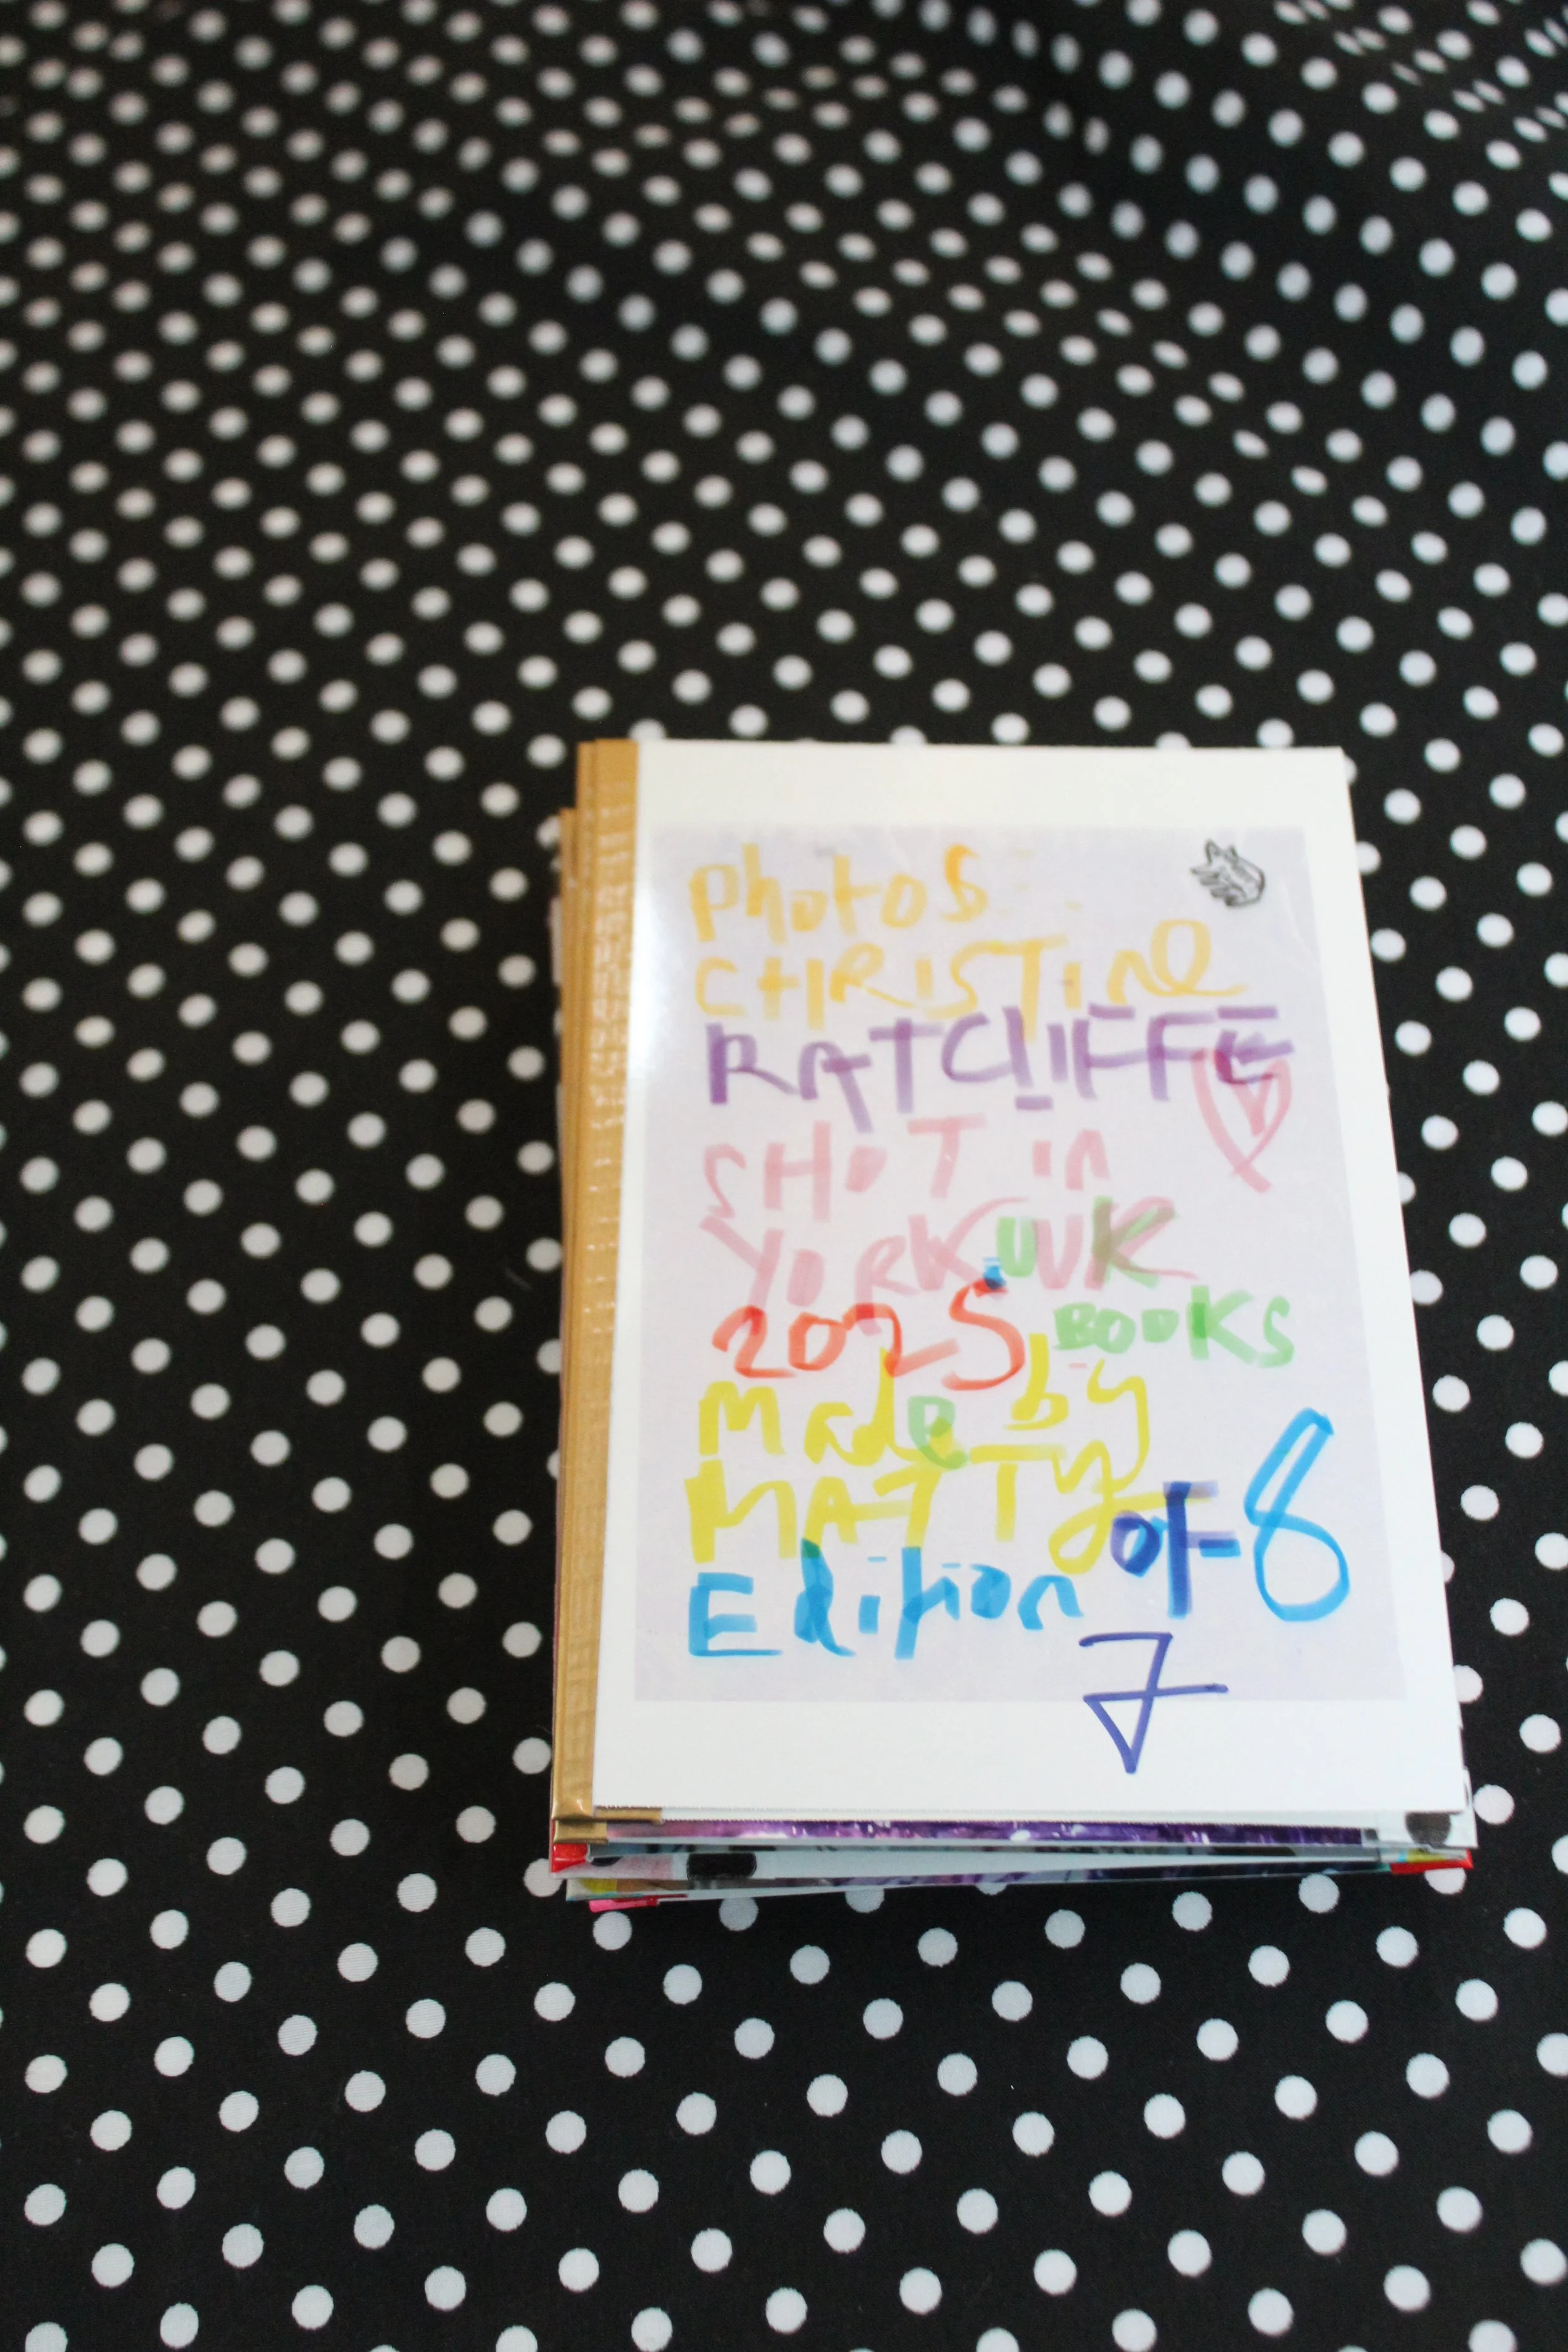 Photos
CHRISTine
RATCLIFFE
SHOT in
YORK UK
2025 BOOKS
Made by
MATTY
Edition of 8
7